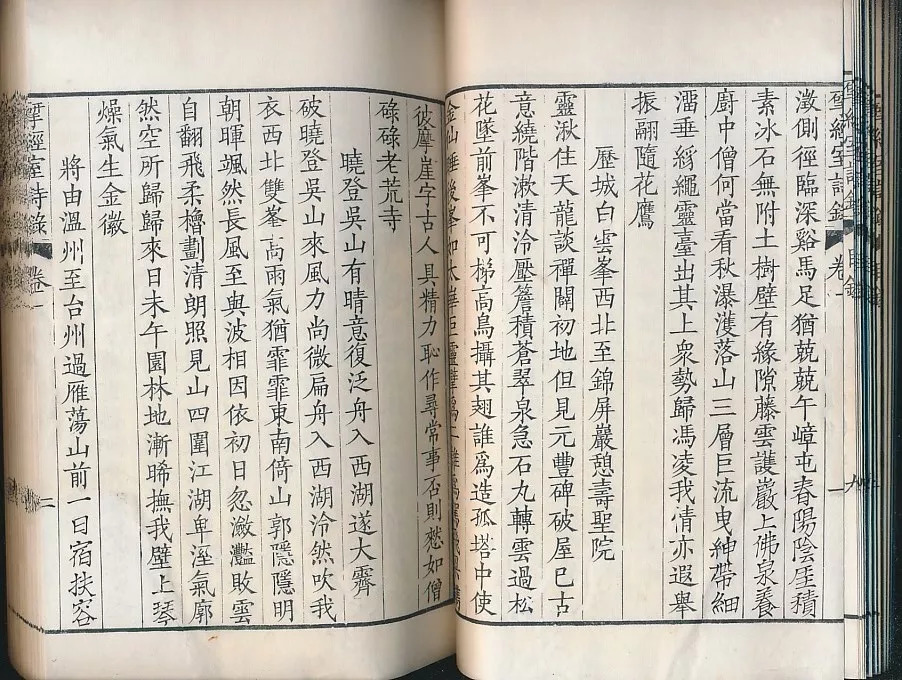 揅經室詩錄 卷一
澂側徑臨深谿馬足猶兢兢午嶂屯春陽陰厓積
素冰石無附土樹壁有緣隙藤雲護巖上佛泉養
廚中僧何當看秋瀑濩落山三層巨流曳紳帶細
溜垂綵繩靈臺出其上衆勢歸馮凌我情亦遐舉
振翮隨花鷹
歷城白雲峯西北至錦屏巖憩壽聖院
靈湫住天龍談禪闢初地但見元豐碑破屋已古
意繞階漱清泠壓簷積蒼翠泉急石丸轉雲過松
花墜前峯不可梯高鳥攝其翅誰爲造孤塔中使
彼摩崖字古人具精力恥作尋常事否則慙如僧
碌碌老荒寺
曉登吳山有晴意復泛舟入西湖遂大霽
破曉登吳山來風力尚微扁舟入西湖泠然吹我
衣西北雙峯高雨氣猶霏霏東南倚山郭隱隱明
朝暉颯然長風至與波相因依初日忽瀲灩敗雲
自翻飛柔櫓劃清朗照見山四圍江湖卑溼氣廓
然空所歸歸來日未午園林地漸晞撫我壁上琴
燥氣生金徽
將由溫州至台州過雁蕩山前一日宿扶容
揅經室詩錄 卷一 二